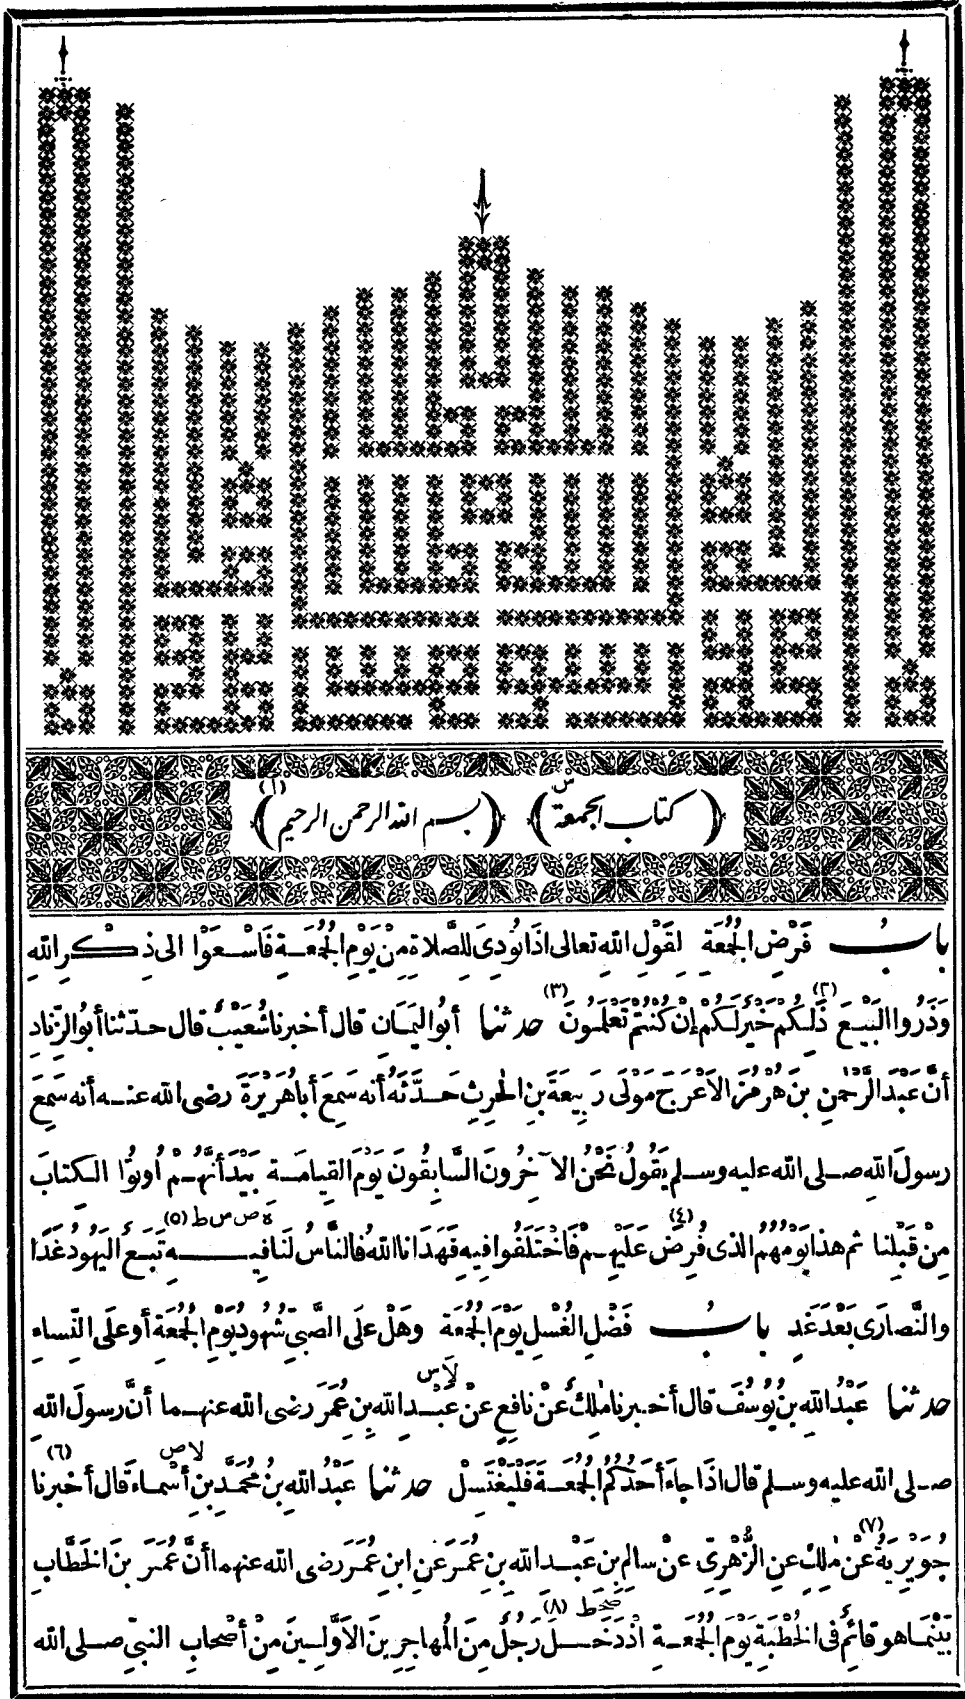 ﴿ كتاب الجمعة ﴾ س ﴿ بسم الله الرحمن الرحيم ﴾ (١)
بابُ فَرْضِ الجُمُعَةِ لِقَوْلِ اللهِ تعالى اذَا نُودِىَ لِلصَّلاةِ مِنْ يَوْمِ الجُمُعَةِ فَاسْعَوْا الى ذِكْرِ اللهِ
وَذَرُوا البَيْعَ (٢) ذَلِكُمْ خَيْرٌ لَكُمْ إِنْ كُنْتُمْ تَعْلَمُونَ (٣) حدثنا أبُو اليَمَانِ قال أخبرنا شُعَيْبٌ قال حدّثنا أبُو الزِّنادِ
أنَّ عَبْدَ الرَّحْمٰنِ بنَ هُرْمُزَ الأَعْرَجَ مَوْلَى رَبِيعَةَ بنِ الحٰرِثِ حَدَّثَهُ أنه سَمِعَ أباهُرَيْرَةَ رضى الله عنه أنه سَمِعَ
رسولَ اللهِ صلى الله عليه وسلم يَقُولُ نَحْنُ الآخِرُونَ السَّابِقُونَ يَوْمَ القِيامَةِ بَيْدَ أنَّهُمْ أُوتُوا الكِتابَ
مِنْ قَبْلِنا ثم هذا يَوْمُهُمُ الذى فُرِضَ (٤) عَلَيْهِمْ فَاخْتَلَفُوا فِيهِ فَهَدَانا اللهُ فالنَّاسُ لَنا فِيهِ (٥) ه ص س ط تَبَعٌ اليَهُودُ غَدًا
والنَّصارَى بَعْدَ غَدٍ بابُ فَضْلِ الغُسْلِ يَوْمَ الجُمُعَةِ وهَلْ على الصَّبِىِّ شُهُودُ يَوْمِ الجُمُعَةِ أو على النِّساءِ
حدثنا عَبْدُ اللهِ بنُ يُوسُفَ قال أخبرنا مٰلِكٌ عَنْ نافِعٍ عنْ عَبْدِ اللهِ لا س بنِ عُمَرَ رضى الله عنهما أنَّ رسولَ اللهِ
صلى الله عليه وسلم قال اذَا جاءَ أحَدُكُمُ الجُمُعَةَ فَلْيَغْتَسِلْ حدثنا عَبْدُ اللهِ بنُ مُحَمَّدِ بنِ أسْماءَ لا ص قال أخبرنا (٦)
جُوَيْرِيَةُ (٧) عنْ مٰلِكٍ عنِ الزُّهْرِىِّ عنْ سالِمِ بنِ عَبْدِ اللهِ بنِ عُمَرَ عَنِ ابنِ عُمَرَ رضى الله عنهما أنَّ عُمَرَ بنَ الخَطَّابِ
بَيْنَما هو قائِمٌ فى الخُطْبَةِ يَوْمَ الجُمُعَةِ اذْ دَخَلَ (٨) رَجُلٌ مِنَ المُهاجِرِينَ الأَوَّلِينَ مِنْ أصْحابِ النبىِّ صلى الله